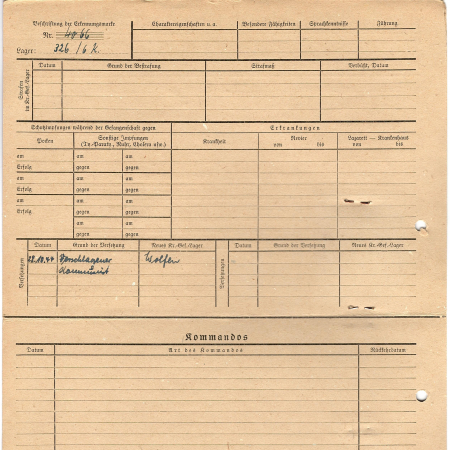 Beschriftung der Erkennungsmarke
Nr. 4866
Lager: 326 / 6 K.
Charaktereigenschaften u. a.
Besondere Fähigkeiten
Sprachkenntnisse
Führung
Strafen im Kr.-Gef.-Lager
Datum
Grund der Bestrafung
Strafmaß
Verbüßt, Datum
Schutzimpfungen während der Gefangenschaft gegen
Erkrankungen
Pocken
Sonstige Impfungen
(Ty.-Paraty., Ruhr, Cholera usw.)
Krankheit
Revier
von bis
Lazarett — Krankenhaus
von bis
am am am
Erfolg gegen gegen
am am am
Erfolg gegen gegen
am am am
Erfolg gegen gegen
am am am
Erfolg gegen gegen
am am
gegen gegen
Versetzungen
Datum
Grund der Versetzung
Neues Kr.-Gef.-Lager
Versetzungen
Datum
Grund der Versetzung
Neues Kr.-Gef.-Lager
Wolfen
Kommunist
Kommandos
Datum
Art des Kommandos
Rückkehrdatum